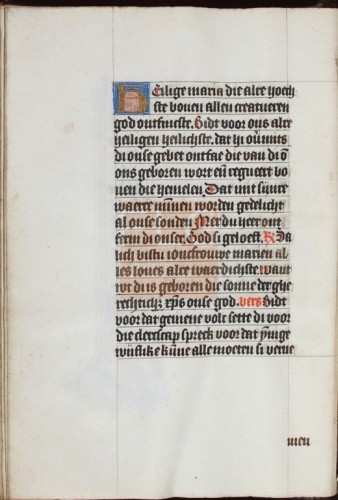 Heilige maria die alre hoech
ste bouen allen creatueren
god ontfincste. Bidt voor ons alre
heiligen heilichste. dat hi
di onse gebet ontfae die van di
ons geboren wort en regneert bo
uen die hemelen. Dat mit
waerre worden gedelicht
al onse sonden Mer du heer ont
ferm di onser. God si geloeft. Sa
lich bistu ioncfrouwe marien al
les loues alre waerdichste. want
wt di is geboren die sonne der ghe
rechticheit xps onse god. vers Bidt
voor dat gemene volc sette di voor
die clerscap spreck voor dat ynige
wijflike alle moeten si verne
men